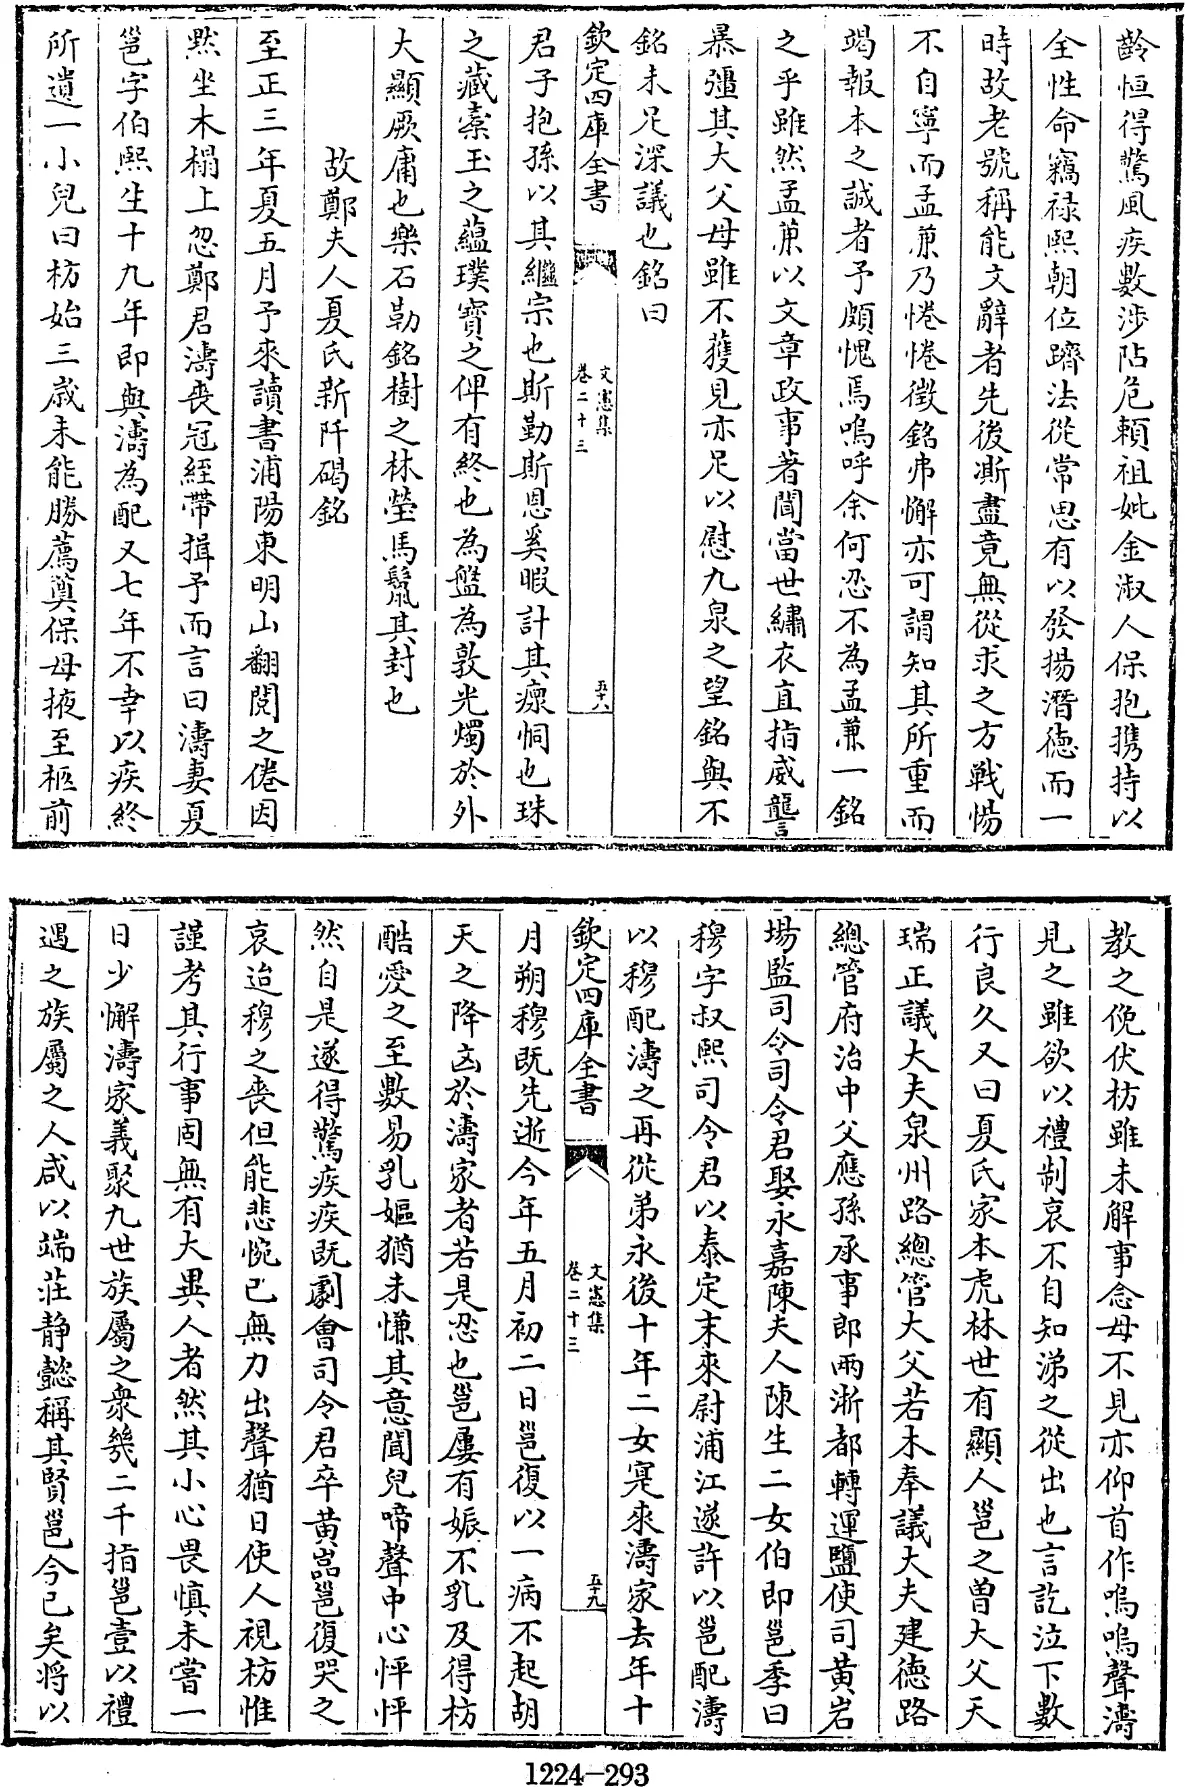 齡恒得驚風疾數涉阽危賴祖妣金淑人保抱攜持以
全性命竊祿熙朝位躋法從常思有以發揚潛德而一
時故老號稱能文辭者先後凘盡竟無從求之方戰惕
不自寧而孟兼乃惓惓徵銘弗懈亦可謂知其所重而
竭報本之誠者予頗愧焉嗚呼余何忍不為孟兼一銘
之乎雖然孟兼以文章政事著聞當世繡衣直指威讋
暴彊其大父母雖不獲見亦足以慰九泉之望銘與不
銘未足深議也銘曰
欽定四庫全書
文憲集
卷二十三
五十八
君子抱孫以其繼宗也斯勤斯恩奚暇計其瘝恫也珠
之藏櫜玉之蘊璞寶之俾有終也為盤為敦光燭於外
大顯厥庸也樂石勒銘樹之林塋馬鬛其封也
故鄭夫人夏氏新阡碣銘
至正三年夏五月予來讀書浦陽東明山翻閱之倦因
默坐木榻上忽鄭君濤喪冠絰帶揖予而言曰濤妻夏
邕字伯熙生十九年即與濤為配又七年不幸以疾終
所遺一小兒曰枋始三歲未能勝薦奠保母掖至柩前
教之俛伏枋雖未解事念母不見亦仰首作嗚嗚聲濤
見之雖欲以禮制哀不自知涕之從出也言訖泣下數
行良久又曰夏氏家本虎林世有顯人邕之曾大父天
瑞正議大夫泉州路總管大父若木奉議大夫建德路
總管府治中父應孫承事郎兩浙都轉運鹽使司黃岩
場監司令司令君娶永嘉陳夫人陳生二女伯即邕季曰
穆字叔熙司令君以泰定末來尉浦江遂許以邕配濤
以穆配濤之再從弟永後十年二女寔來濤家去年十
欽定四庫全書
文憲集
卷二十三
五十九
月朔穆既先逝今年五月初二日邕復以一病不起胡
天之降凶於濤家者若是忍也邕屢有娠不乳及得枋
酷愛之至數易乳嫗猶未慊其意聞兒啼聲中心怦怦
然自是遂得驚疾疾既劇會司令君卒黃嵓邕復哭之
哀迨穆之喪但能悲惋已無力出聲猶日使人視枋惟
謹考其行事固無有大異人者然其小心畏慎未嘗一
日少懈濤家義聚九世族屬之衆幾二千指邕壹以禮
遇之族屬之人咸以端莊靜懿稱其賢邕今已矣將以
1224-293